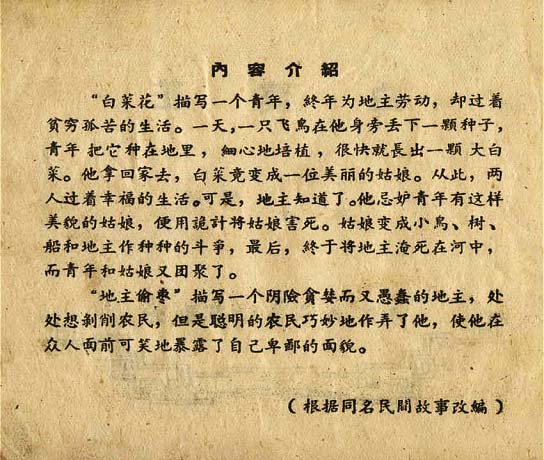 內容介紹
“白菜花”描写一个青年，終年为地主劳动，却过着
貧穷孤苦的生活。一天，一只飞鳥在他身旁丢下一顆种子，
青年把它种在地里，細心地培植，很快就長出一顆大白
菜。他拿回家去，白菜竟变成一位美丽的姑娘。从此，两
人过着幸福的生活。可是，地主知道了。他忌妒青年有这样
美貌的姑娘，便用詭計将姑娘害死。姑娘变成小鳥、树、
船和地主作种种的斗爭，最后，終于将地主淹死在河中，
而青年和姑娘又团聚了。
“地主偷枣”描写一个阴險貪婪而又愚蠢的地主，处
处想剝削农民，但是聪明的农民巧妙地作弄了他，使他在
众人面前可笑地暴露了自己卑鄙的面貌。
（根据同名民間故事改編）